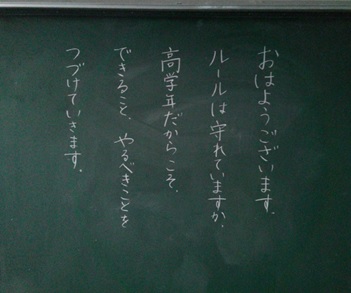 おはようございます。
ルールは守れていますか。
高学年だからこそ、
できること、やるべきことを
つづけていきます。